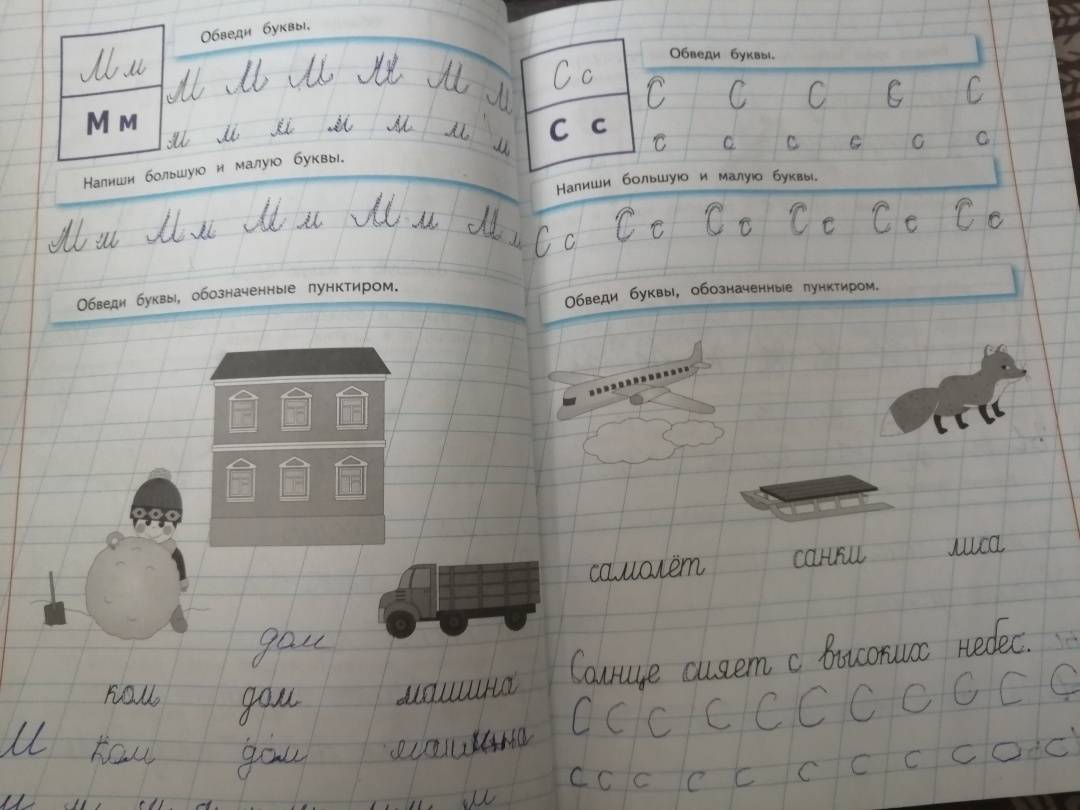 Обведи буквы.
М м
М М М М М М
М м
м м м м м м м
Напиши большую и малую буквы.
М м М м М м М м М м
Обведи буквы, обозначенные пунктиром.
дом
ком дом машина
М ком дом машина
Обведи буквы.
С с
С С С С С
С с
с с с с с с
Напиши большую и малую буквы.
С с С с С с С с С с С с
Обведи буквы, обозначенные пунктиром.
самолёт санки лиса
Солнце сияет с высоких небес.
С С С С С С С С С С С
с с с с с с с с с с